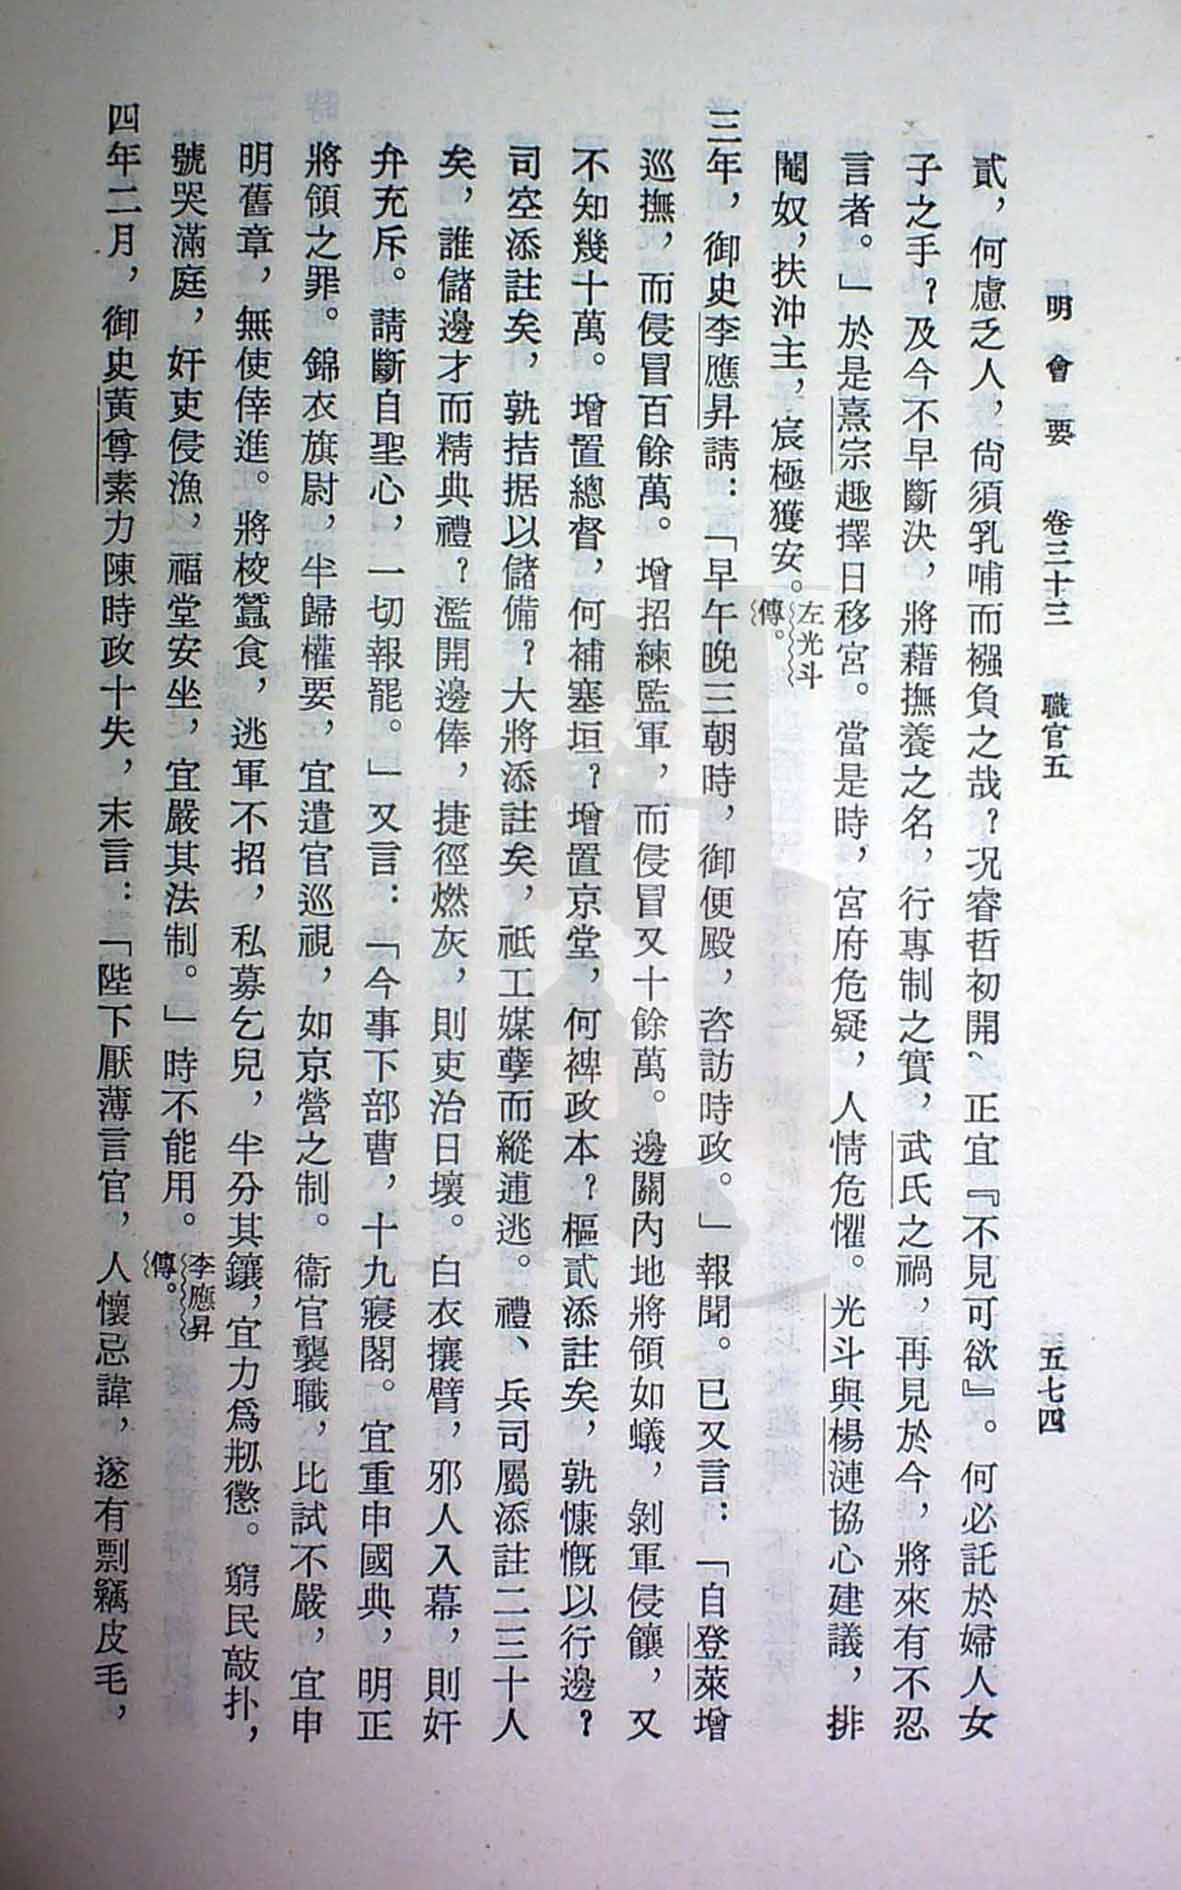 明會要 卷三十三 職官五 五七四
貳，何慮乏人，尙須乳哺而襁負之哉？况睿哲初開、正宜『不見可欲』。何必託於婦人女
子之手？及今不早斷決，將藉撫養之名，行專制之實，武氏之禍，再見於今，將來有不忍
言者。」於是熹宗趣擇日移宮。當是時，宮府危疑，人情危懼。光斗與楊漣協心建議，排
閹奴，扶沖主，宸極獲安。左光斗傳。
三年，御史李應昇請：「早午晚三朝時，御便殿，咨訪時政。」報聞。已又言：「自登萊增
巡撫，而侵冒百餘萬。增招練監軍，而侵冒又十餘萬。邊關內地將領如蟻，剝軍侵饟，又
不知幾十萬。增置總督，何補塞垣？增置京堂，何裨政本？樞貳添註矣，孰慷慨以行邊？
司空添註矣，孰拮据以儲備？大將添註矣，祗工媒孽而縱逋逃。禮、兵司屬添註二三十人
矣，誰儲邊才而精典禮？濫開邊俸，捷徑燃灰，則吏治日壞。白衣攘臂，邪人入幕，則奸
弁充斥。請斷自聖心，一切報罷。」又言：「今事下部曹，十九寢閣。宜重申國典，明正
將領之罪。錦衣旗尉，半歸權要，宜遣官巡視，如京營之制。衞官襲職，比試不嚴，宜申
明舊章，無使倖進。將校蠶食，逃軍不招，私募乞兒，半分其饟，宜力爲剏懲。窮民敲扑，
號哭滿庭，奸吏侵漁，福堂安坐，宜嚴其法制。」時不能用。李應昇傳。
四年二月，御史黃尊素力陳時政十失，末言：「陛下厭薄言官，人懷忌諱，遂有剽竊皮毛，